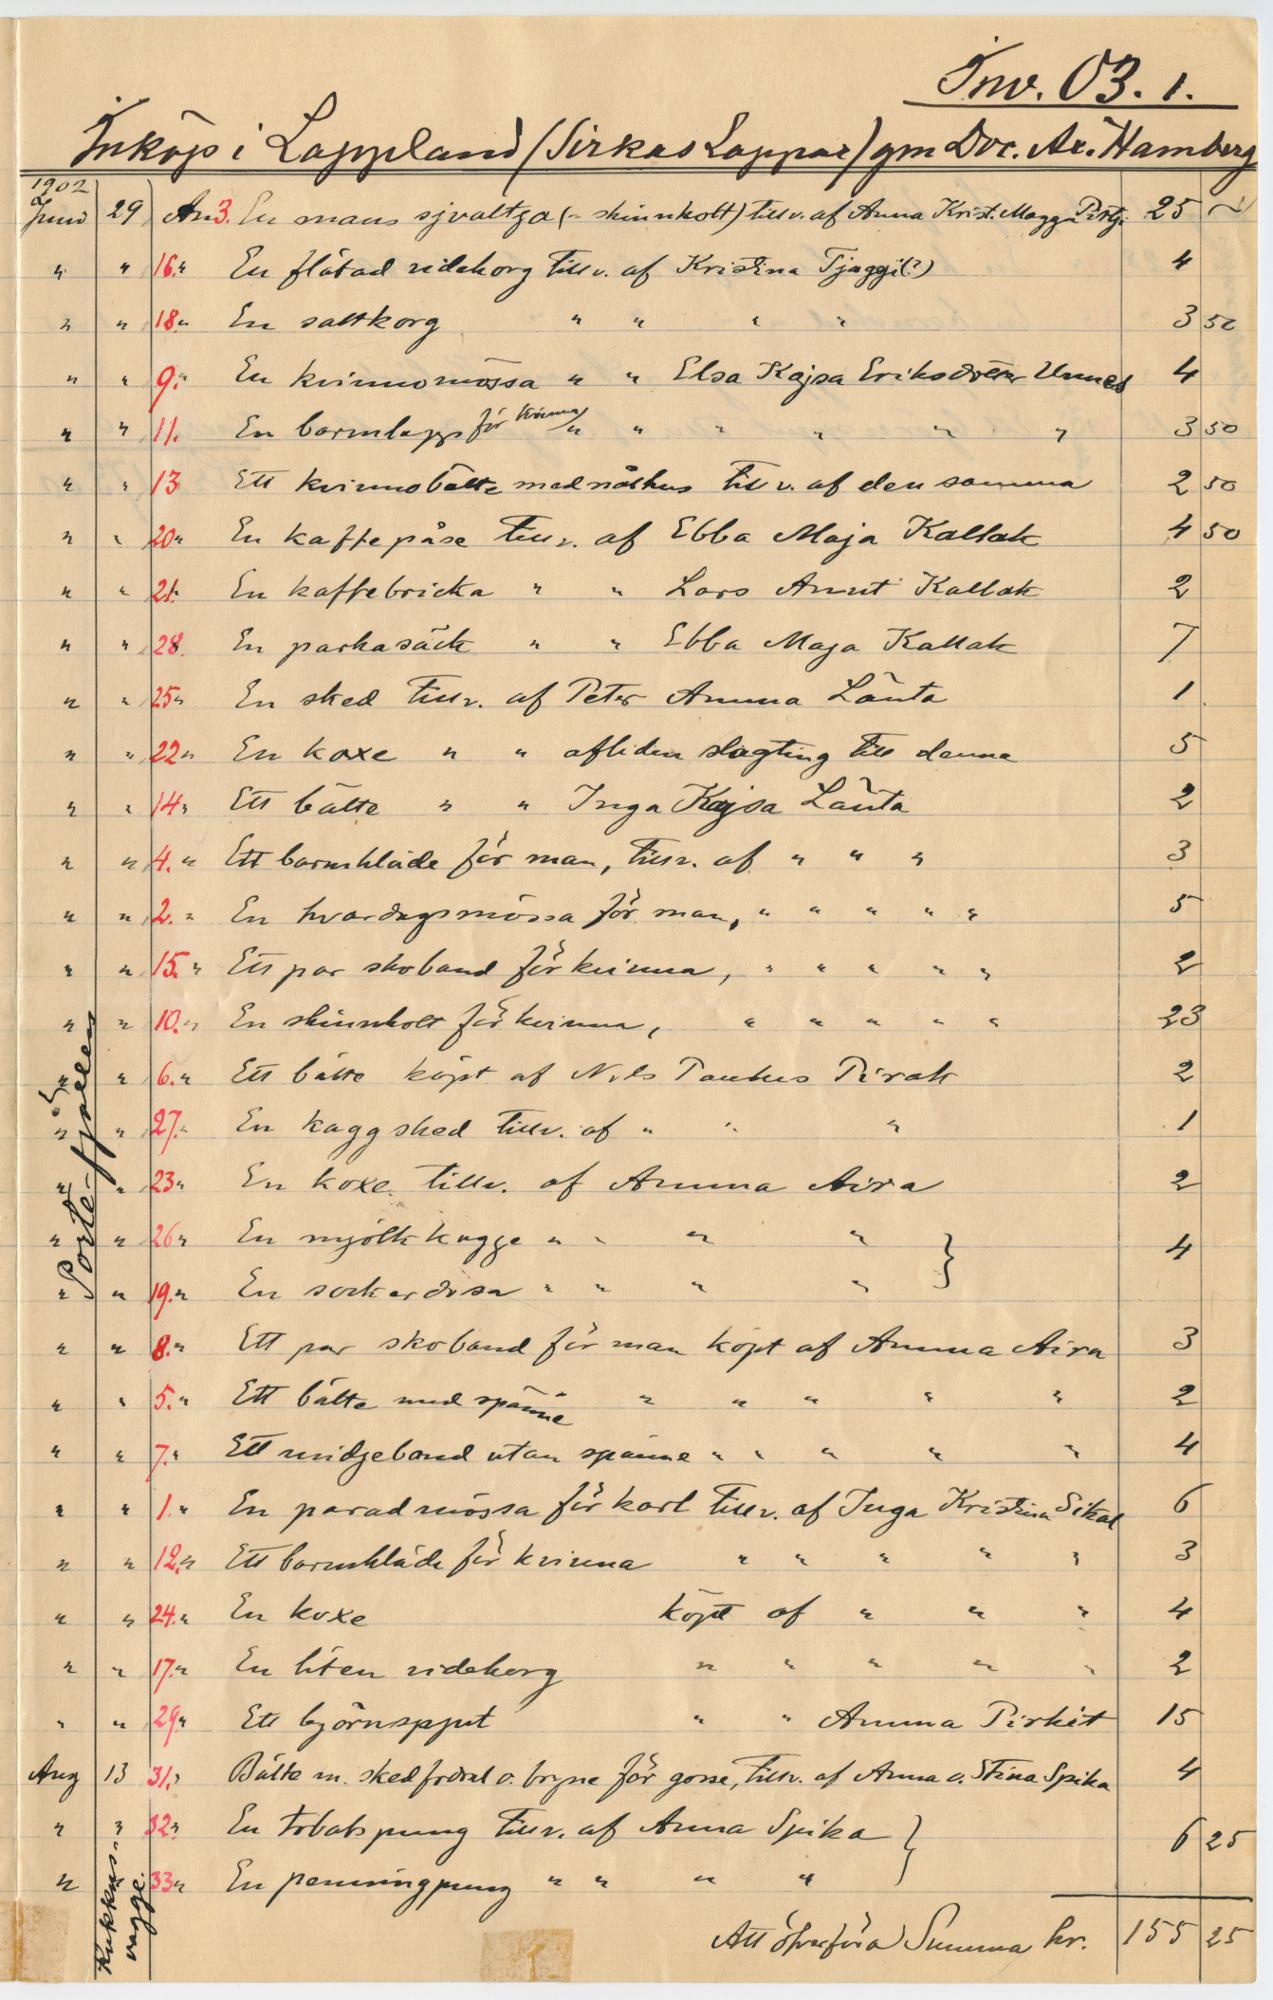 Inv. 03. 1.
Inköp i Lappland (Sirkas Lappar) gm Doc. Ax. Hamberg
1902
Juni 29 An 3. En mans sjvaltja (= skinnkolt) tillv. af Anna Krist. Magga Pirtji 25 ~
" " 16. " En flätad ridekorg tillv. af Kristina Tjaggi(?) 4
" " 18. " En saltkorg " " " " 3 50
" " 9. " En kvinnomössa " " Elsa Kajsa Eriksdotter Unnes 4
" " 11. En barmlapp för kvinna " " " " " " 3 50
" " 13 Ett kvinnobälte med nålhus tillv. af den samma 2 50
" " 20 " En kaffepåse tillv. af Ebba Maja Kallak 4 50
" " 21. En kaffebricka " " Lars Anut Kallak 2
" " 28. En parkasäck " " Ebba Maja Kallak 7
" " 25 " En sked tillv. af Peter Amma Länta 1
" " 22 " En koxe " " afliden slagting till denna 5
" " 14. " Ett bälte " " Inga Kajsa Länta 2
" " 4. " Ett barmkläde för man, tillv. af " " " 3
" " 2. " En hvardagsmössa för man, " " " " " 5
" " 15. " Ett par skoband för kvinna, " " " " " 2
" " 10. " En skinnkolt för kvinna, " " " " " 23
" " 6. " Ett bälte köpt af Nils Paulus Pirak 2
" " 27. " En kaggsked tillv. af " " " 1
" " 23 " En koxe. tillv. af Amma Aira 2
" " 26 " En mjölkkagge " " " " } 4
" " 19. " En sockerdosa " " " "
" " 8. " Ett par skoband för man köpt af Amma Aira 3
" " 5. " Ett bälte med spänne " " " " " 2
" " 7. " Ett midjeband utan spänne " " " " " 4
" " 1. " En paradmössa för karl tillv. af Inga Kristina Sikal 6
" " 12. " Ett barmkläde för kvinna " " " " " 3
" " 24. " En koxe köpt af " " " 4
" " 17. " En liten ridekorg " " " " " 2
" " 29 " Ett björnspjut " " Amma Pirkit 15
Aug 13 31. " Bälte m. skedfodral o. bryne för gosse, tillv. af Anna o. Stina Spika 4
" " 32 " En tobakspung tillv. af Anna Spika } 6 25
" 33 " En penningpung " " " "
Att öfverföra Summa kr. 155 25
Porte-fjällen